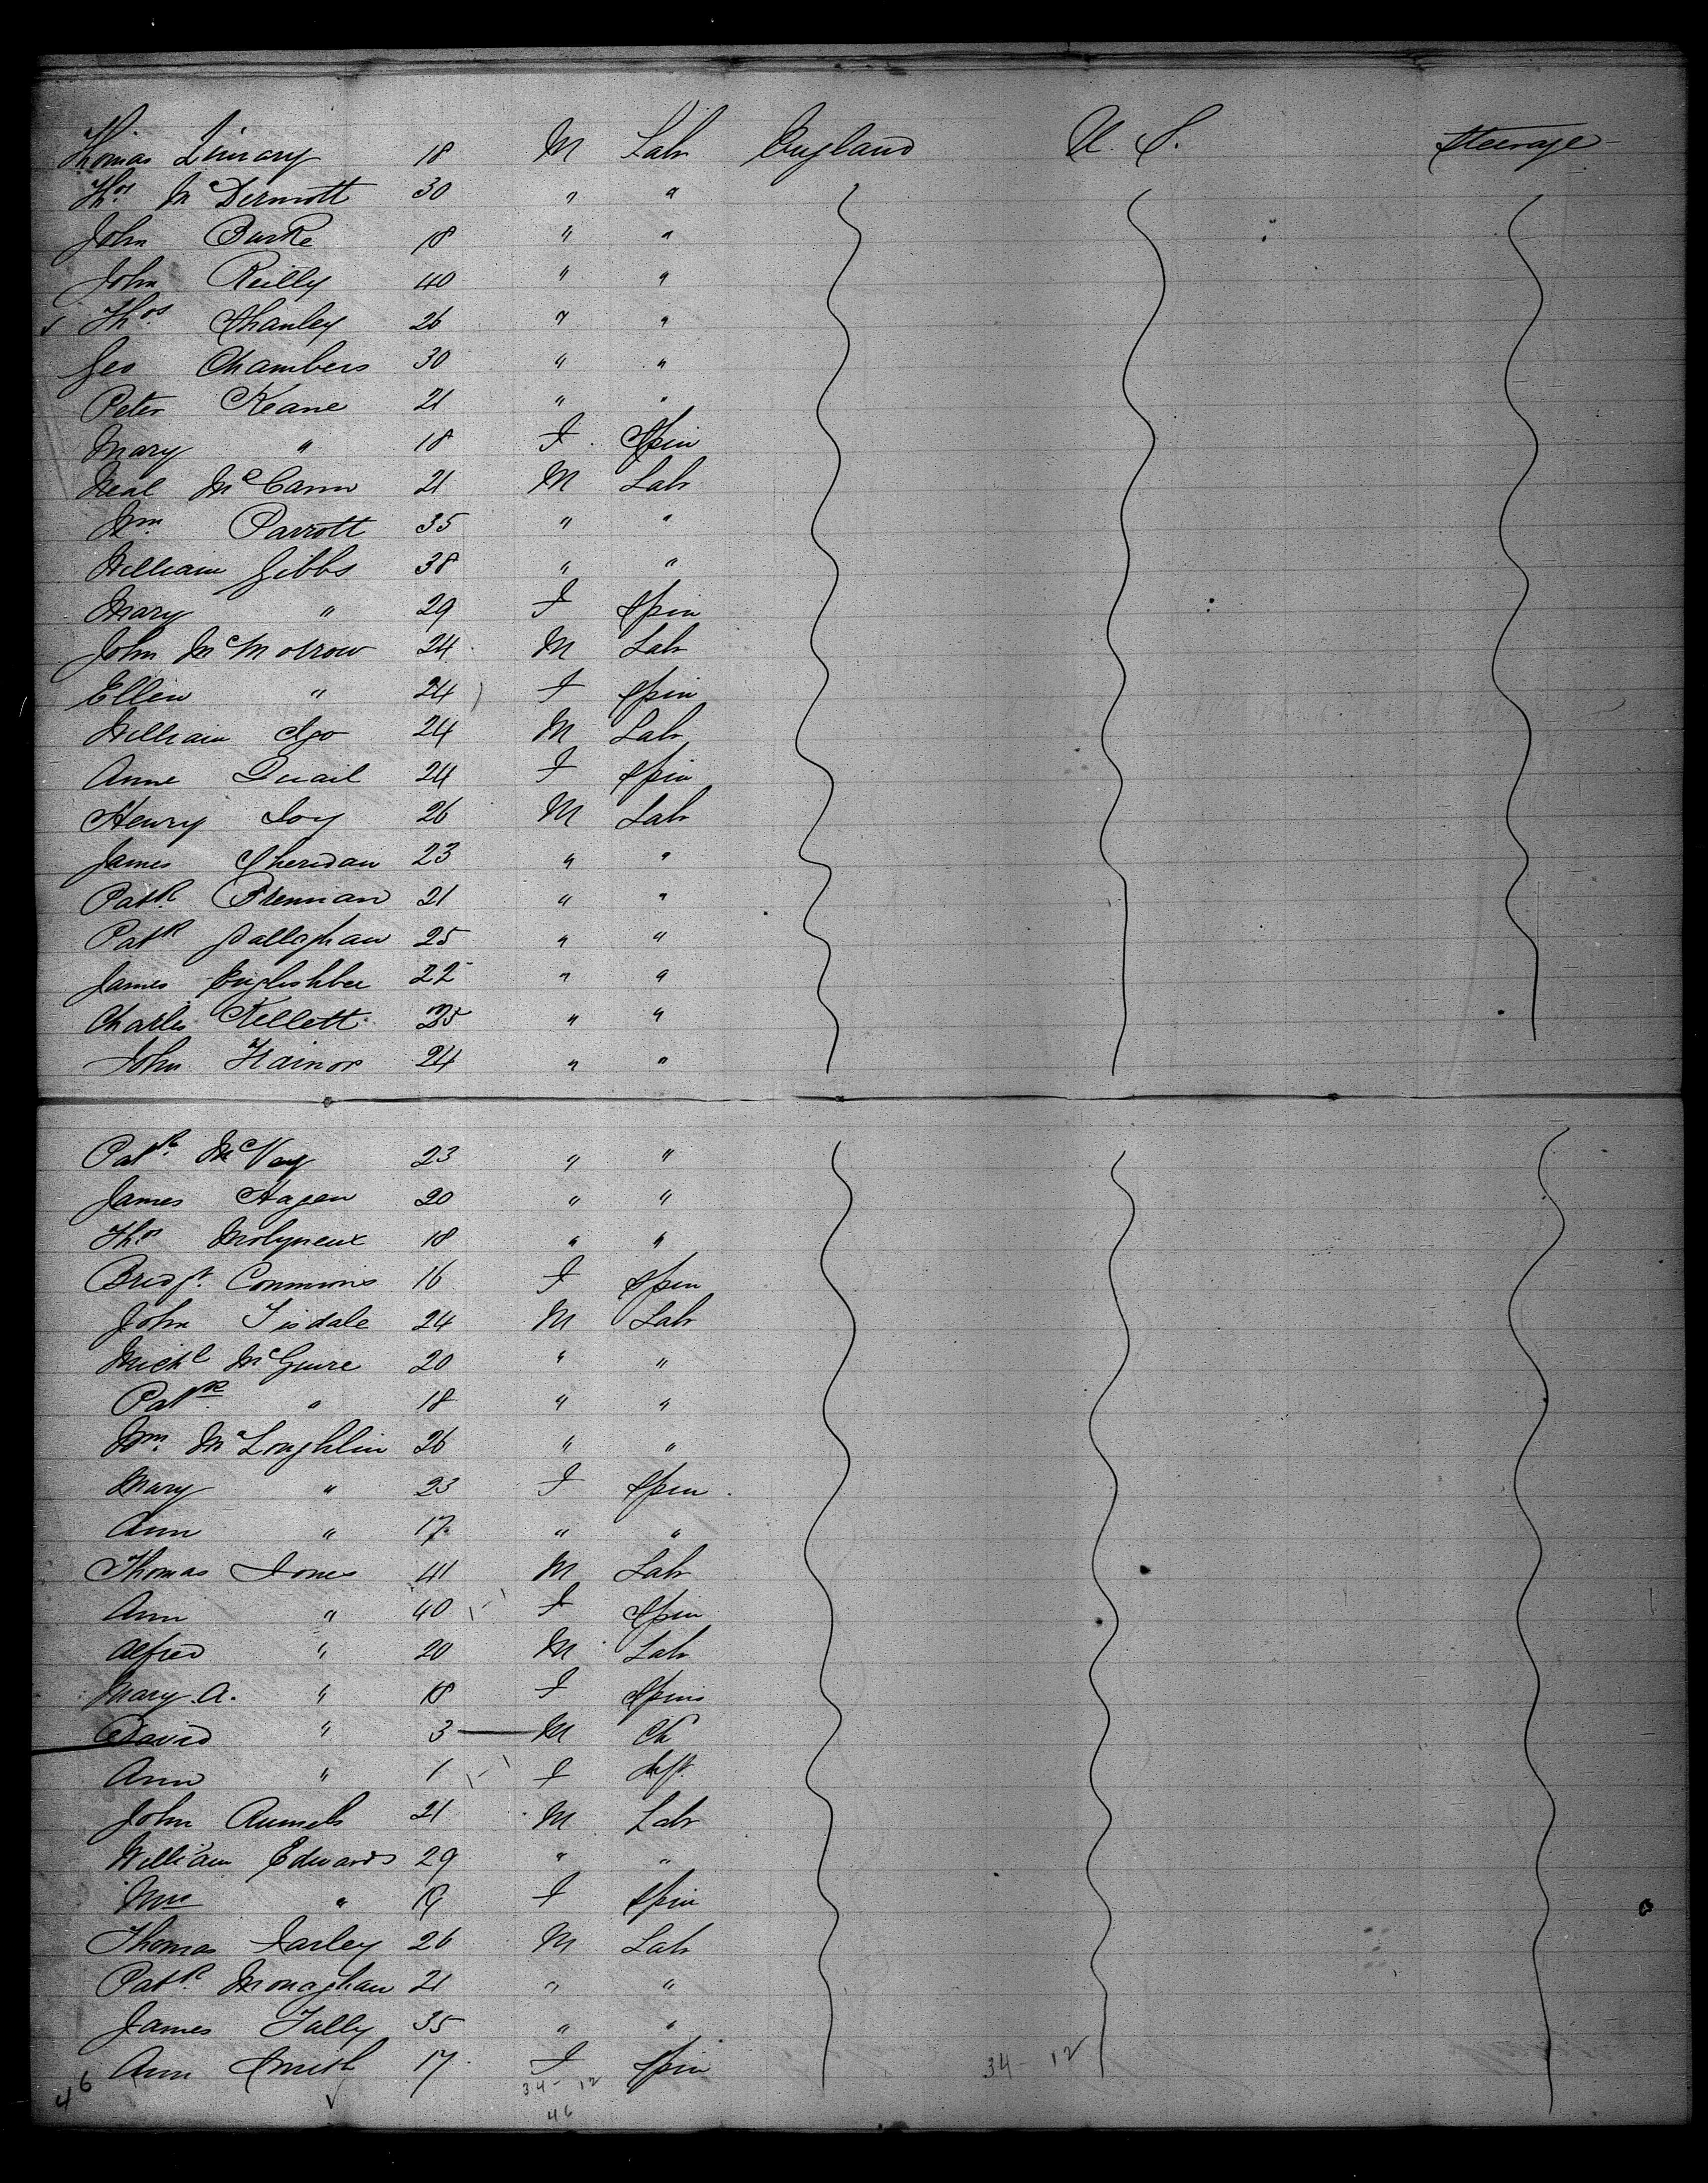 Thomas 18 M Labr England U. S. Steerage
Thos McDermott 30 " "
John Burke 18 " "
John Reilly 40 " "
Thos Shanley 26 " "
Geo Chambers 30 " "
Peter Keane 21 " "
Mary " 18 F Spin
Neal McCann 21 M Labr
Wm Parrott 35 " "
William Gibbs 38 " "
Mary " 29 F Spin
John McMorrow 24 M Labr
Ellen " 24 F Spin
William Igo 24 M Labr
Anne Quail 24 F Spin
Henry Joy 26 M Labr
James Sheridan 23 " "
Patk Brennan 21 " "
Patk Gallaghan 25 " "
James 22 " "
Charles Kellett " "
John Trainor 24 " "
Patk McVay 23 " "
James Hagan 20 " "
Thos Molyneux 18 " "
Bridgt Commins 16 F Spin
John Tisdale 24 M Labr
Michl McGuire 20 " "
Patk " 18 " "
Wm McLoughlin 26 " "
Mary " 23 F Spin
Ann " 17 " "
Thomas Jones 41 M Labr
Ann " 40 F Spin
Alfred " 20 M Labr
Mary A. " 18 F Spin
David " 3 M Ch
Ann " 1 F Inft
John 21 M Labr
William Edwards 29 " "
Mrs " 19 F Spin
Thomas Farley 26 M Labr
Patk Monaghan 21 " "
James Tally 35 " "
Ann Smith 17 F Spin
46 34 - 12 34 - 12
46